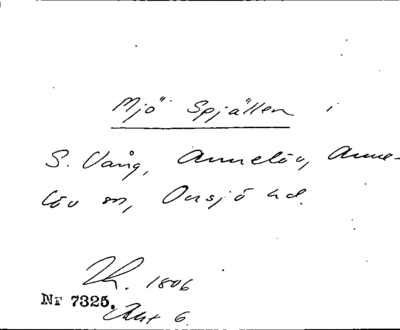 Mjö Spjällen i
S. Vång, Annelöv, Anne-
löv sn, Onsjö hd.
1806
Nr 7325.
Akt 6